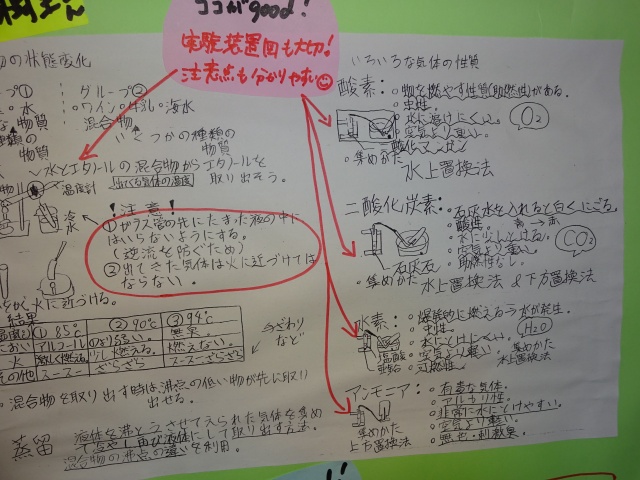 ココがgood!
実験装置図も大切!
注意点も分かりやすい
の状態変化
グループ②
・水
・ワイン・牛乳・海水
な物質
混合物
種類の
物質
いくつかの種類の
物質
水とエタノールの混合物からエタノールを
取り出そう。
温度計
出てくる気体の温度
冷水
!注意!
①ガラス管の先にたまった液の中に
はいらないようにする。
(逆流を防ぐため)
②出てきた気体は火に近づけては
ならない。
水に近づける。
結果
85℃ ②90℃ ③94℃
無臭
火 燃える。 燃えない。
その他 スースー ざらざら スースーざらざら
今ざわり
など
・混合物を取り出す時は沸点の低い物が先に取り
出せる。
蒸留
液体を沸とうさせて得られた気体を集め
て冷やし再び液体にして取り出す方法。
混合物の沸点の違いを利用。
いろいろな気体の性質
酸素:
・物を燃やす性質(助燃性)がある。
・虫性。
・水に溶けにくい。
・空気より重い。
O2
二酸化マンガン
・集めかた 水上置換法
二酸化炭素:
・石灰水を入れると白くにごる。
・酸性。
・水に少しとける。
・空気より重い。
CO2
石灰石
・集めかた 水上置換法 & 下方置換法
水素:
・爆発的に燃える
・虫性。
・水にとけにくい。
・空気より軽い
・可燃性
H2O
塩酸
亜鉛
集めかた
水上置換法
アンモニア:
・有毒な気体。
・アルカリ性。
・非常に水にとけやすい。
・空気より軽い
・無色・刺激臭。
集めかた
上方置換法